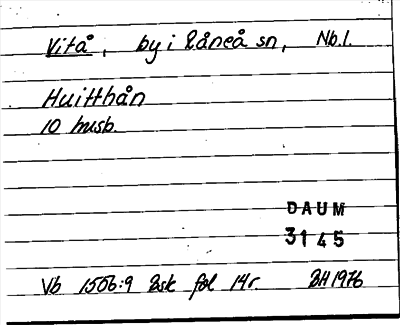 Vitå, by i Råneå sn, Nb.l.
Huitthån
10 husb.
DAUM
3145
Vb 1556:9 Bsk fol 14r. BH 1976